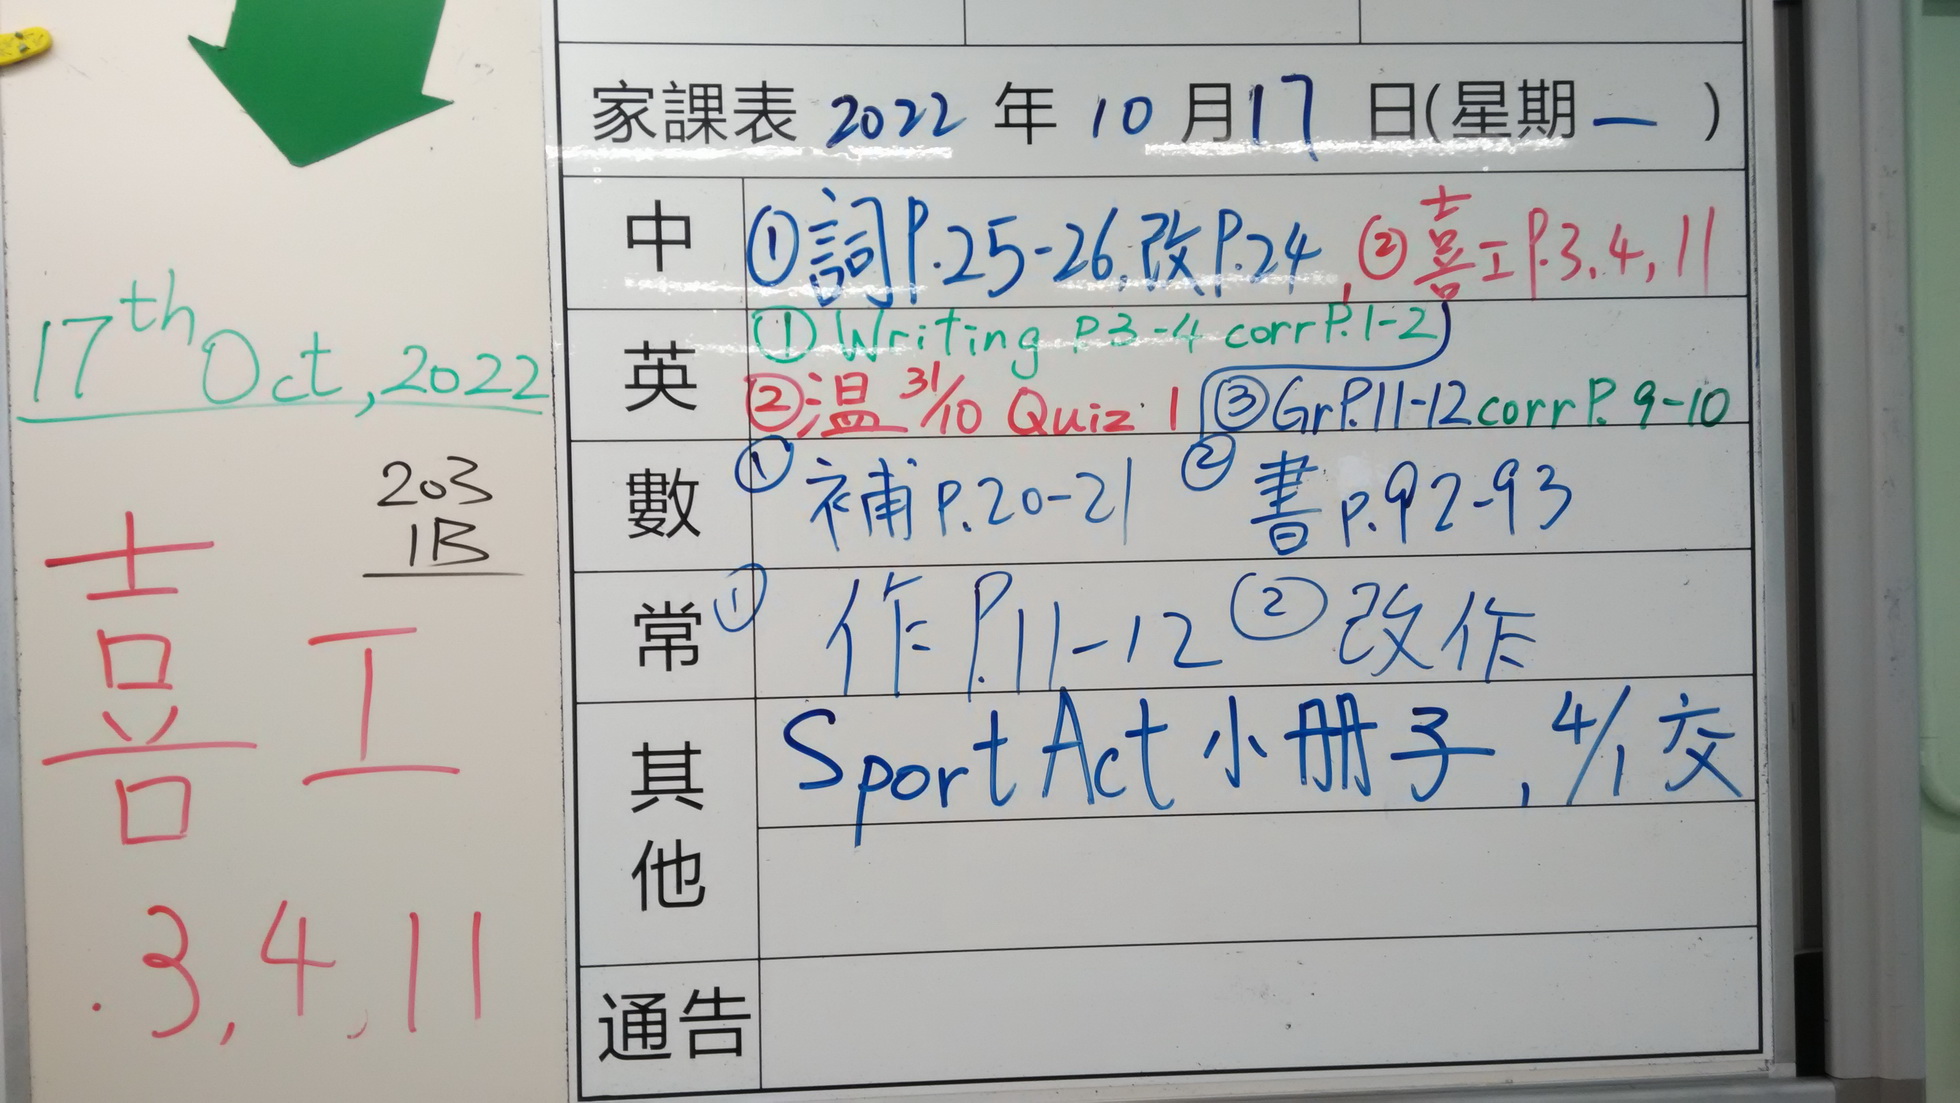 17th Oct, 2022
203
1B
喜 工
.3, 4, 11
家課表 2022 年 10 月 17 日(星期 一 )
中 ①詞P.25-26,改P.24, ②喜工P.3,4,11
英 ① Writing P.3-4 corr P.1-2
②温 31/10 Quiz 1 ③Gr P.11-12 corr P. 9-10
數 ① 補 P.20-21 ② 書 P.92-93
常 ① 作 P.11-12 ② 改作
其他 Sport Act 小册子, 4/1 交
通告